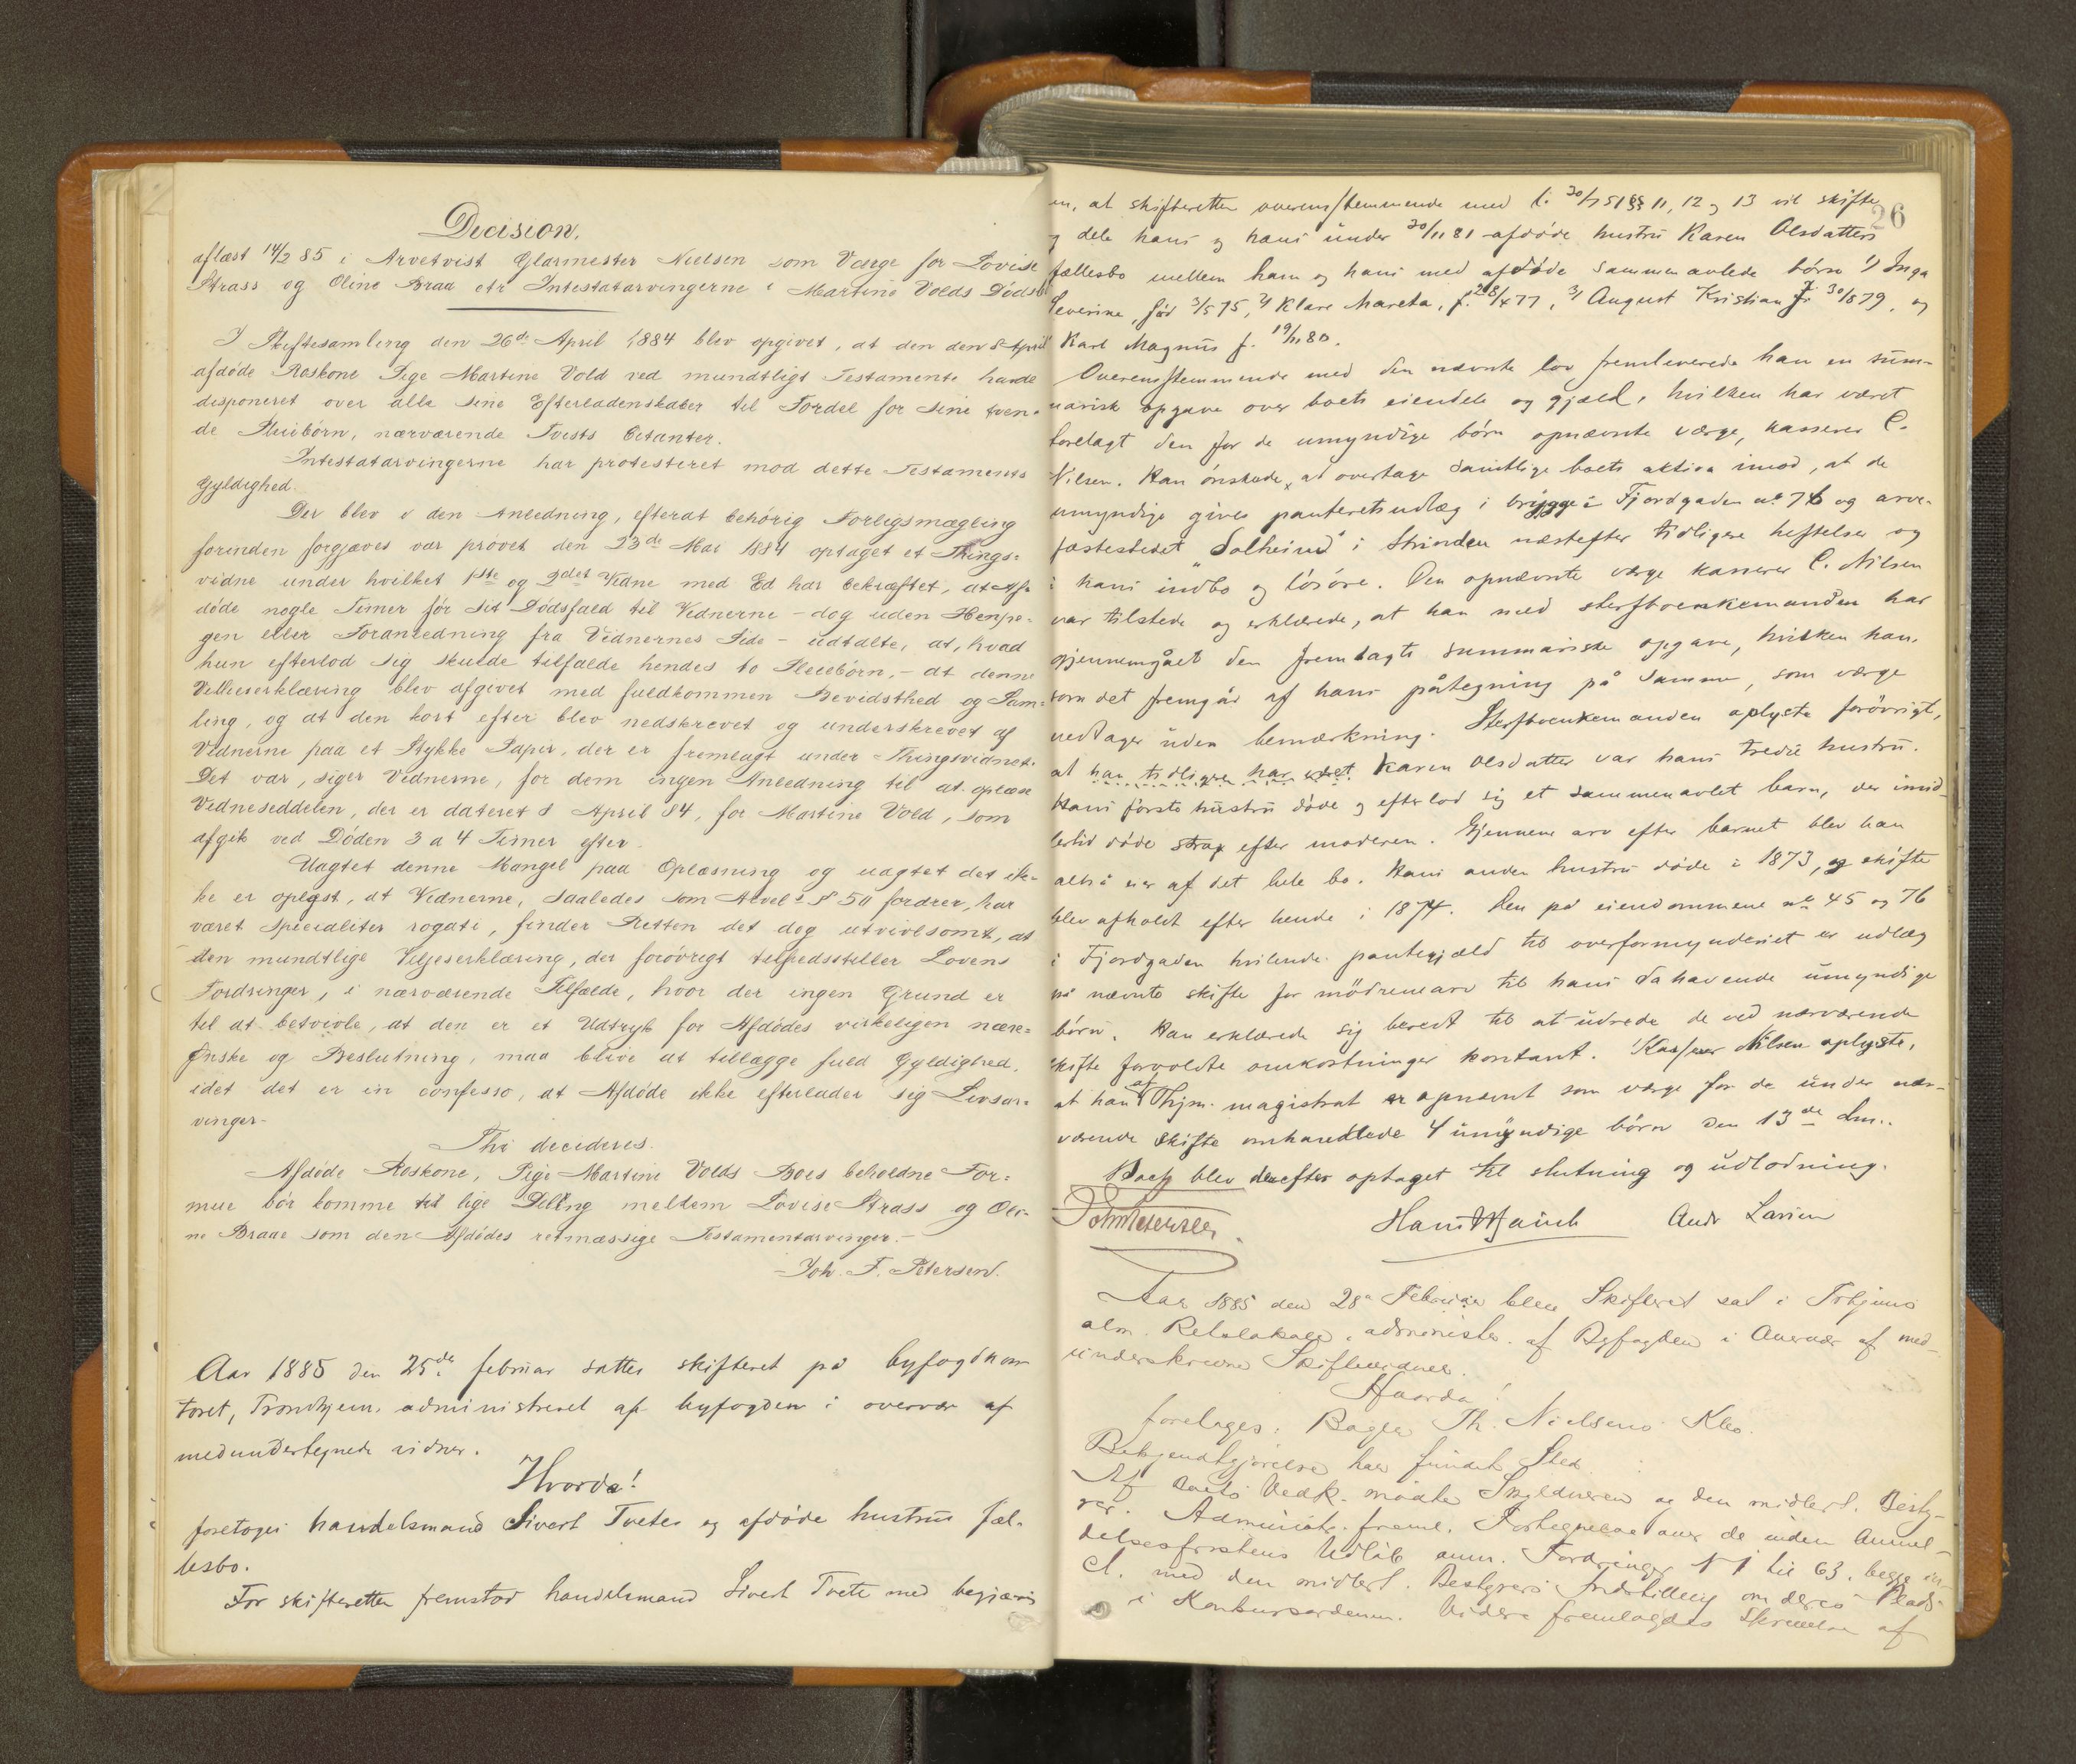 Decision,
aflæst 14/2 85 i Arvetvist Glarmester Nielsen som Værge for Lovise
Strass og Oline Braa ctr Intestatarvingerne i Martine Volds Dødsb
I Skiftesamling den 26de April 1884 blev opgivet, at den den 8 April
afdøde Roskone Pige Martine Vold ved mundtligt Testamente havde
disponeret over alle sine Efterladenskaber til Fordel for sine tven-
de Pleiebørn, nærværende Tvists Citanter.
Intestatarvingerne har protesteret mod dette Testaments
Gyldighed.
Der blev i den Anledning, efterat behørig Forligsmægling
forinden forgjæves var prøvet den 23de Mai 1884 optaget et Things-
vidne under hvilket 1ste og 2det Vidne med Ed har bekræftet, at Af-
døde nogle Timer før sit Dødsfald til Vidnerne - dog uden Henpe-
gen eller Foranledning fra Vidnernes Side - udtalte, at, hvad
hun efterlod sig skulde tilfalde hendes to Pleiebørn, - at denne
Villieserklæring blev afgivet med fuldkommen Bevidsthed og Sam-
ling, og at den kort efter blev nedskrevet og underskrevet af
Vidnerne paa et Stykke Papir, der er fremlagt under Thingsvidnet.
Det var, siger Vidnerne, for dem ingen Anledning til at oplæse
Vidneseddelen, der er dateret 8 April 84, for Martine Vold, som
afgik ved Døden 3 a 4 Timer efter.
Uagtet denne Mangel paa Oplæsning og uagtet det ik-
ke er oplyst, at Vidnerne, saaledes som Arvel. § 50 fordrer, har
været specialiter rogati, finder Retten det dog utvivlsomt, at
den mundtlige Viljeserklæring, der forøvrigt tilfredsstiller Lovens
Fordringer, i nærværende Tilfælde, hvor der ingen Grund er
til at betvivle, at den er et Udtryk for Afdødes virkeligen nære-
Ønske og Beslutning, maa blive at tillægge fuld Gyldighed,
idet det er in confesso, at Afdøde ikke efterlader sig Livsar-
vinger-
Thi decideres.
Afdøde Roskone, Pige Martine Volds Boes beholdne For-
mue bør komme til lige Deling mellem Lovise Strass og Oli-
ne Braae som den Afdødes retmæssige Testamentarvinger.-
Joh. F. Petersen.
Aar 1885 den 25de februar sattes skifteret på byfogdkon
toret, Trondhjem, administreret af byfogden i overvær af
medundertegnede vidner.
Hvorda!
foretoges handelsmand Sivert Tvetes og afdøde hustrus fæl-
lesbo.
For skifteretten fremstod handelsmand Sivert Tvete med begjæring
26
om, at skifteretten overensstemmende med l. 30/7 51 §§ 11, 12 og 13 vil skifte
og dele hans og hans under 20/11 81 afdøde hustru Karen Olsdatters
fællesbo mellem ham og hans med afdøde sammenavlede børn 1) Inga
Severine, fød 3/5 75, 2) Klara Mareta, f. 28/4 77, 3) August Kristian f. 30/8 79, og
Karl Magnus f. 19/11 80.
Overensstemmende med den nævnte lov fremleverede han en sum-
marisk opgave over boets eiendele og gjæld, hvilken har været
forelagt den for de umyndige børn opnævnte værge, kasserer C.
Nilsen. Han ønskede, at overtage samtlige boets aktiva imod, at de
umyndige gives panteretsudlæg i brygge i Fjordgaden no 76 og arve-
fæstestedet "Solheim" i Strinden næstefter tidligere heftelser og
i hans indbo og løsøre. Den opnævnte værge kasserer C. Nilsen
var tilstede og erklærede, at han med sterfboenkemanden har
gjennemgået den fremlagte summariske opgave, hvilken han,
som det fremgår af hans påtegning på samme, som værge
vedtager uden bemærkning. Sterfboenkemanden oplyste forøvrigt,
at han tidligere har været Karen Olsdatter var hans tredie hustru.
Hans første hustru døde og efterlod sig et sammenavlet barn, der imid-
lertid døde strax efter moderen. Gjennem arv efter barnet blev han
altså eier af det hele bo. Hans anden hustru døde i 1873, og skifte
blev afholdt efter hende i 1874. Den på eiendommene no 45 og 76
i Fjordgaden hvilende pantegjæld til overformynderiet er udlæg
på nævnte skifte for mødrenearv til hans da havende umyndige
børn. Han erklærede sig beredt til at udrede de ved nærværende
skifte forvoldte omkostninger kontant. Kasserer Nilsen oplyste,
at han af Thjm. magistrat er opnævnt som værge for de under nær-
værende skifte omhandlede 4 umyndige børn den 13de dm..
Boet blev derefter optaget til slutning og udlodning.
Joh. Petersen. Andr Larsen
Aar 1885 den 28de Februar blev Skifteret sat i Trhjems
alm. Retslokale, administr. af Byfogden i Overvær af med-
underskrevne Skiftevidner.
Hvorda!
foretoges: Bager Th. Nielsens Kbo.
Bekjendtgjørelse har fundet Sted.
Af Boets Vedk. mødte Skyldneren og den midlert. Besty-
rer. Administr. freml. Fortegnelse over de inden Anmel-
delsesfristens Udløb anm. Fordringer N 1 til 63, begge in-
cl. med den midlert. Bestyrers Indstilling om deres Plads
i Konkursordenen. Videre fremlagdes Skrivelse af